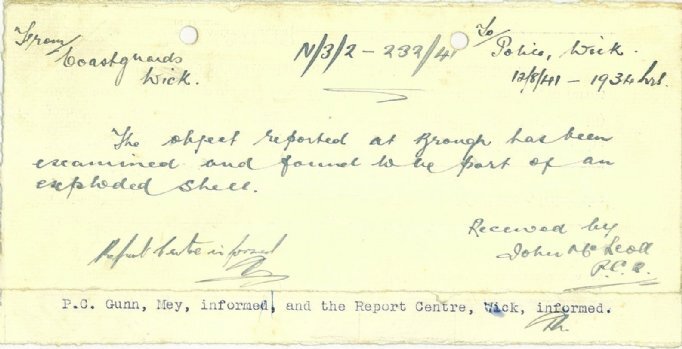 From/
Coastguards
Wick.
N/3/2 - 232/41
To/
Police, Wick.
12/8/41 - 1934 hrs.
The object reported at Brough has been
examined and found to be part of an
exploded shell.
Received by
John McLeod
P.C.
Report Centre informed
P.C. Gunn, Mey, informed, and the Report Centre, Wick, informed.